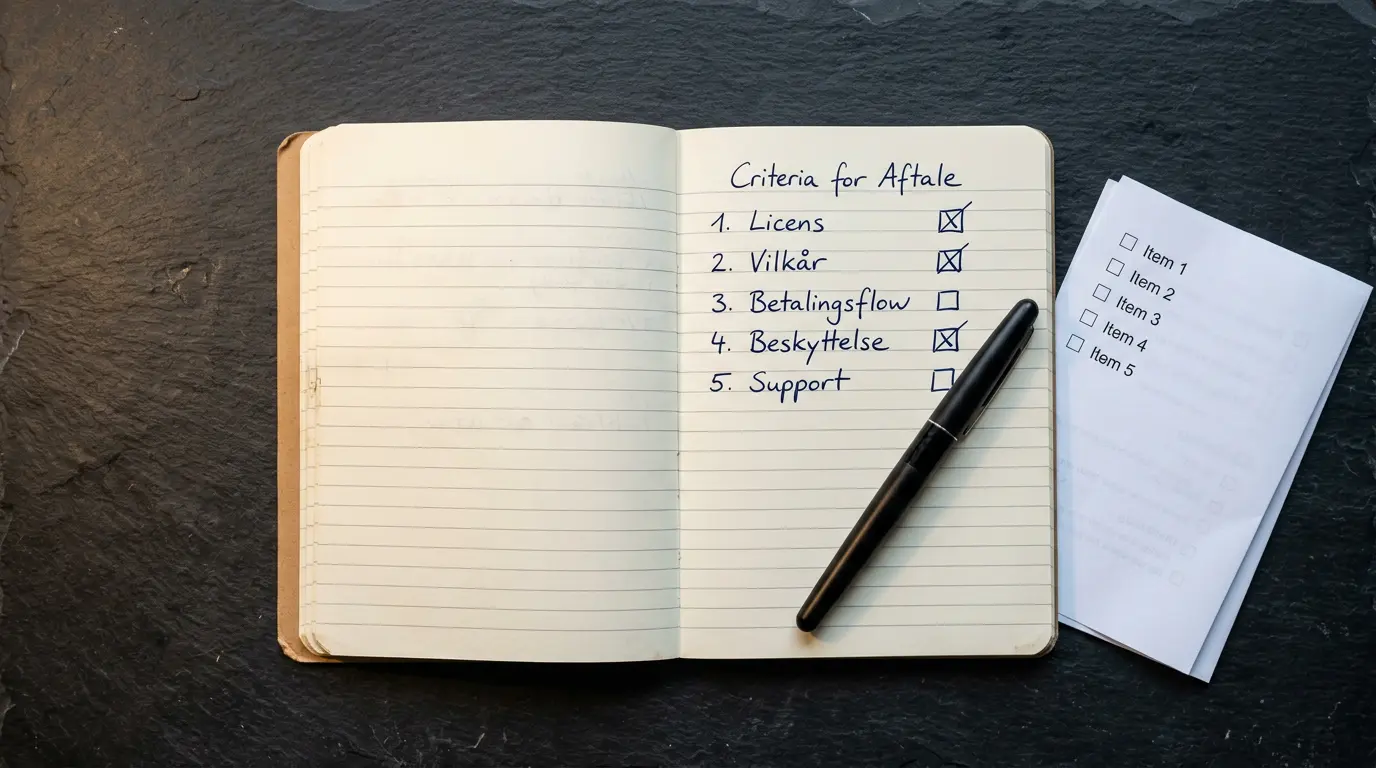 Criteria for Aftale
1. Licens ☒
2. Vilkår ☒
3. Betalingsflow ☐
4. Beskyttelse ☒
5. Support ☐
☐ Item 1
☐ Item 2
☐ Item 3
☐ Item 4
☐ Item 5